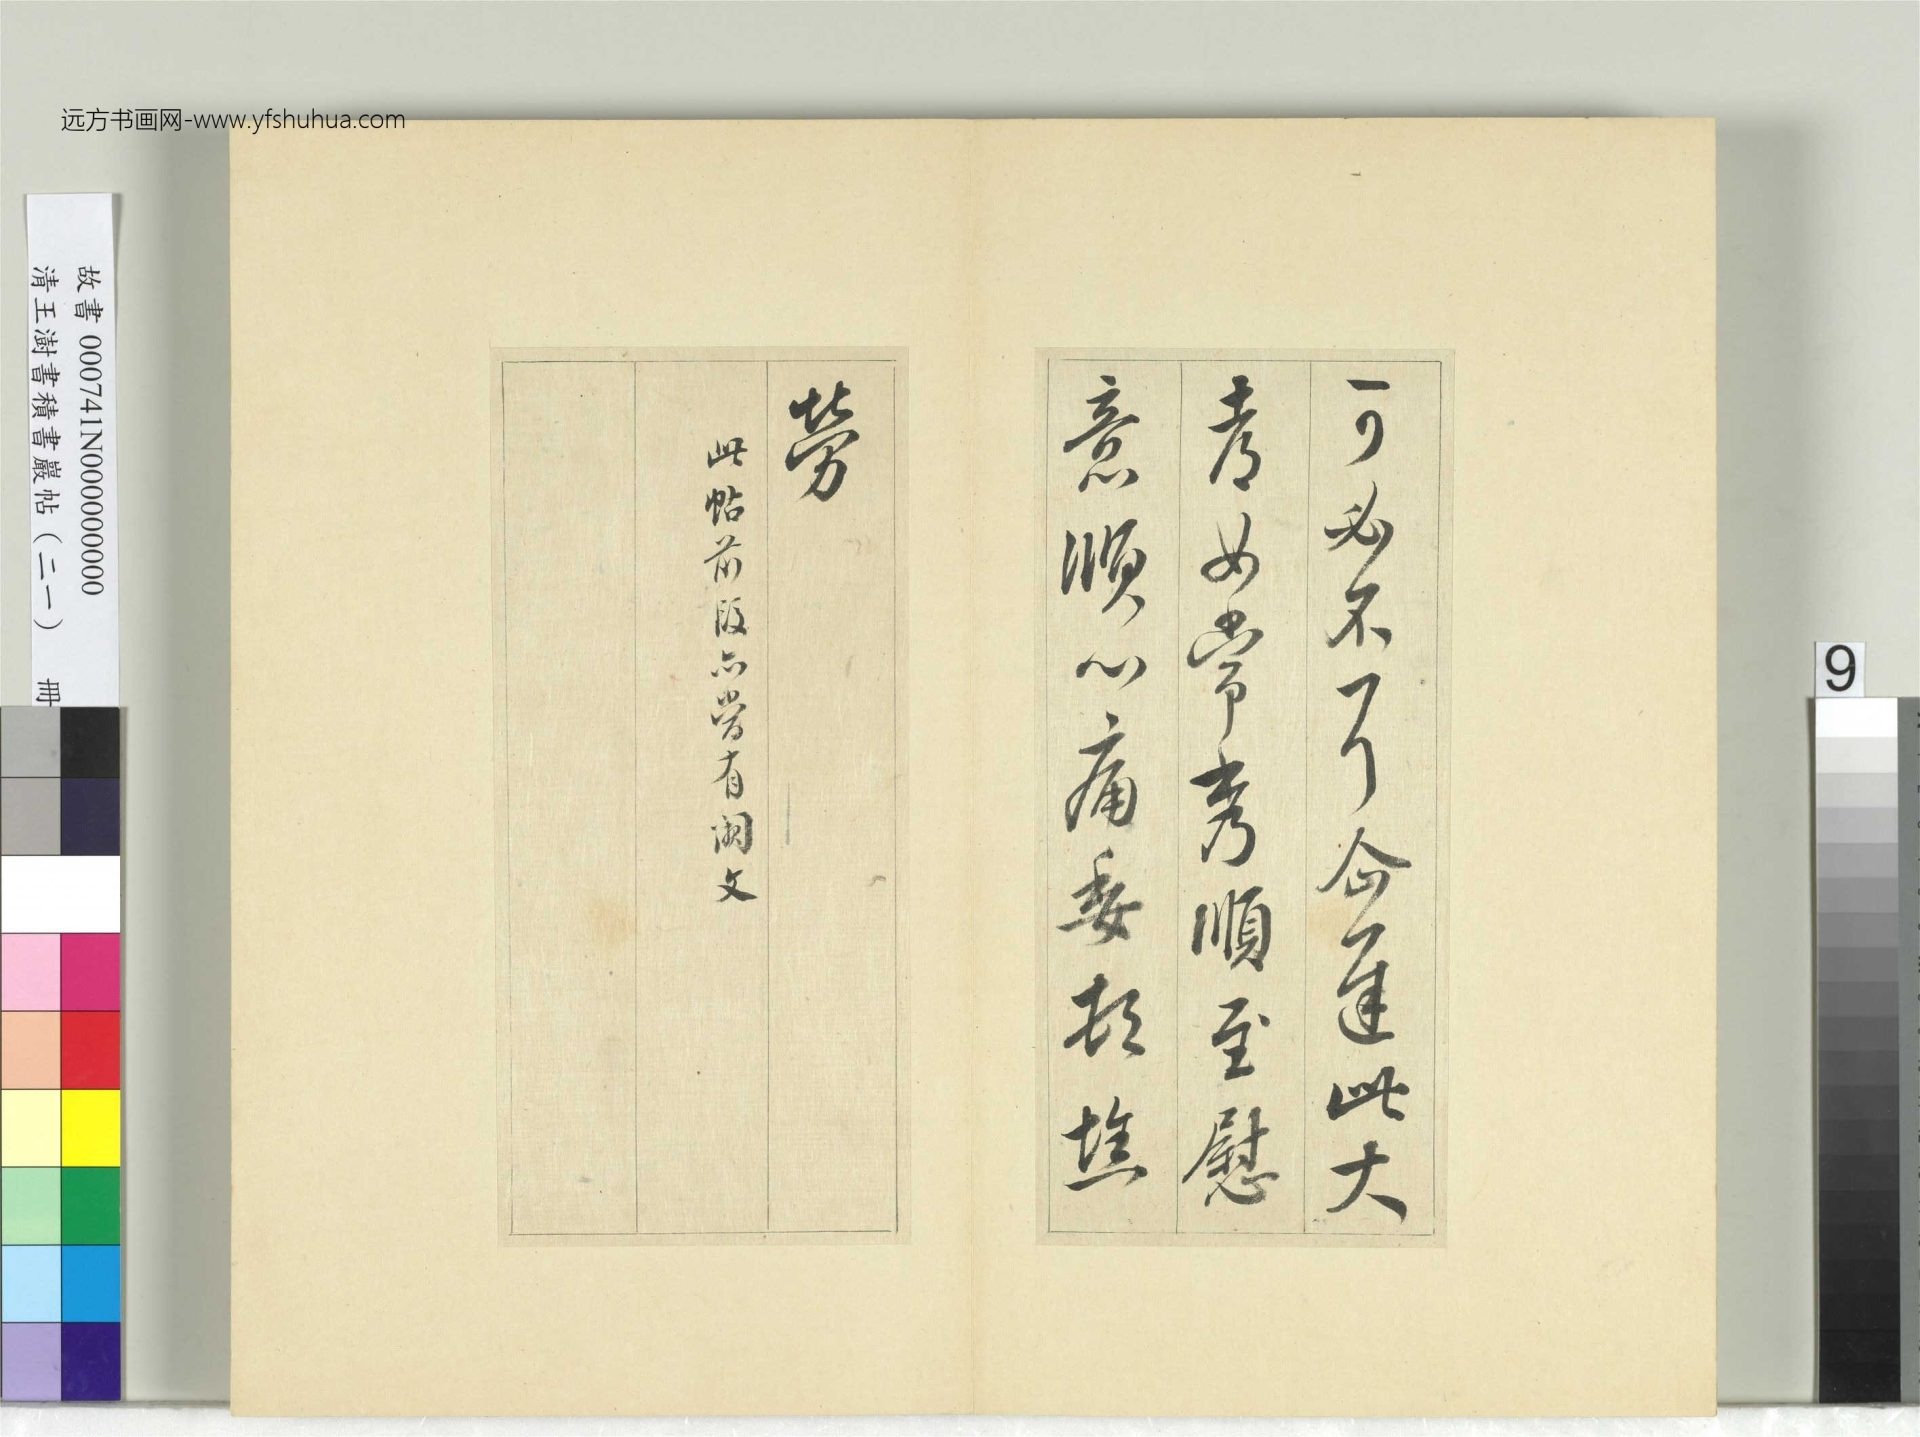 远方书画网-www.yfshuhua.com
故書 000741N000000000
清王澍書積書巖帖（二一） 冊
9
可必不耳企遲此大
都如常秀順至慰
意順心痛委頓燋
勞
此帖前段亦當有闕文